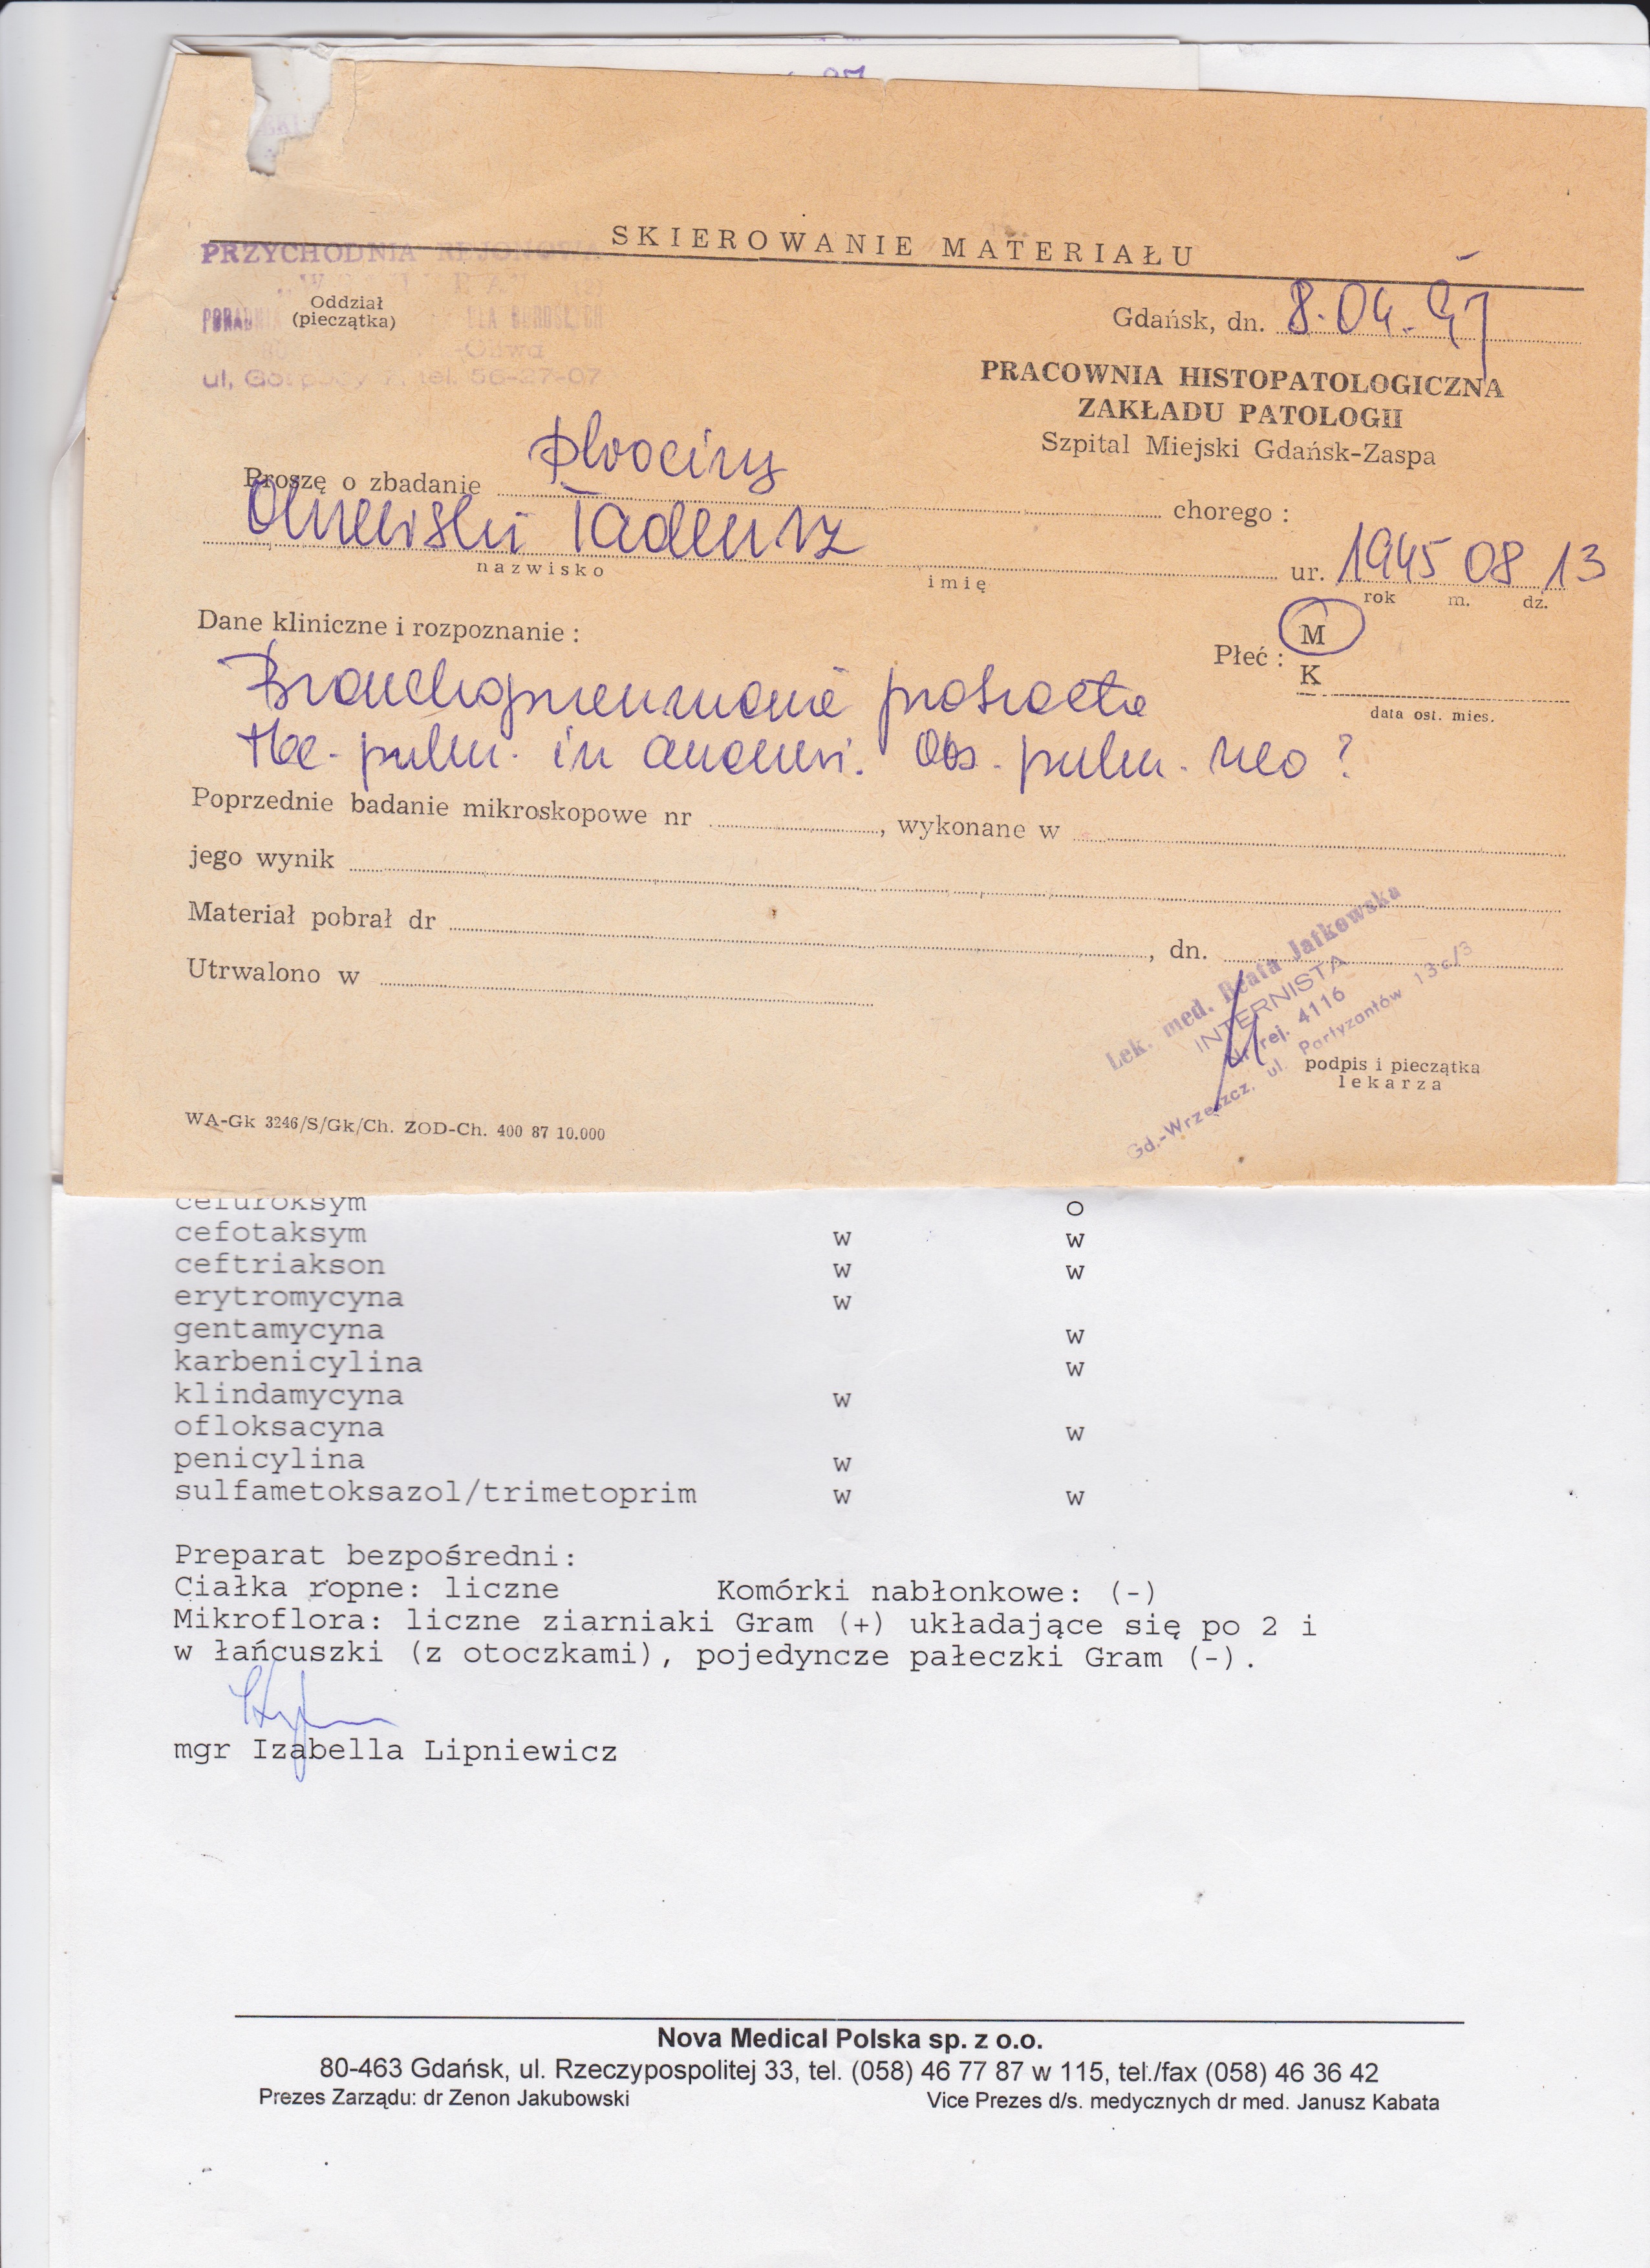 SKIEROWANIE MATERIAŁU
PRZYCHODNIA REJONOWA
Oddział
(pieczątka)
PORADNIA DLA DOROSŁYCH
-Oliwa
ul. tel. 56-27-07
Gdańsk, dn. 8.04.97
PRACOWNIA HISTOPATOLOGICZNA
ZAKŁADU PATOLOGII
Szpital Miejski Gdańsk-Zaspa
Proszę o zbadanie plwociny chorego :
Tadeusz
nazwisko imię
ur. 1945 08 13
rok m. dz.
Dane kliniczne i rozpoznanie :
Płeć : M
K
data ost. mies.
Bronchopneumonia protracta
tbc. pulm. in anamn. Obs. pulm. neo ?
Poprzednie badanie mikroskopowe nr , wykonane w
jego wynik
Materiał pobrał dr , dn.
Utrwalono w
Lek. med. Beata Jatkowska
INTERNISTA
Nr rej. 4116
Gd.-Wrzeszcz. ul. Partyzantów 13c/3
podpis i pieczątka
lekarza
WA-Gk 3246/S/Gk/Ch. ZOD-Ch. 400 87 10.000
cefuroksym o
cefotaksym w w
ceftriakson w w
erytromycyna w
gentamycyna w
karbenicylina w
klindamycyna w
ofloksacyna w
penicylina w
sulfametoksazol/trimetoprim w w
Preparat bezpośredni:
Ciałka ropne: liczne Komórki nabłonkowe: (-)
Mikroflora: liczne ziarniaki Gram (+) układające się po 2 i
w łańcuszki (z otoczkami), pojedyncze pałeczki Gram (-).
mgr Izabella Lipniewicz
Nova Medical Polska sp. z o.o.
80-463 Gdańsk, ul. Rzeczypospolitej 33, tel. (058) 46 77 87 w 115, tel./fax (058) 46 36 42
Prezes Zarządu: dr Zenon Jakubowski Vice Prezes d/s. medycznych dr med. Janusz Kabata